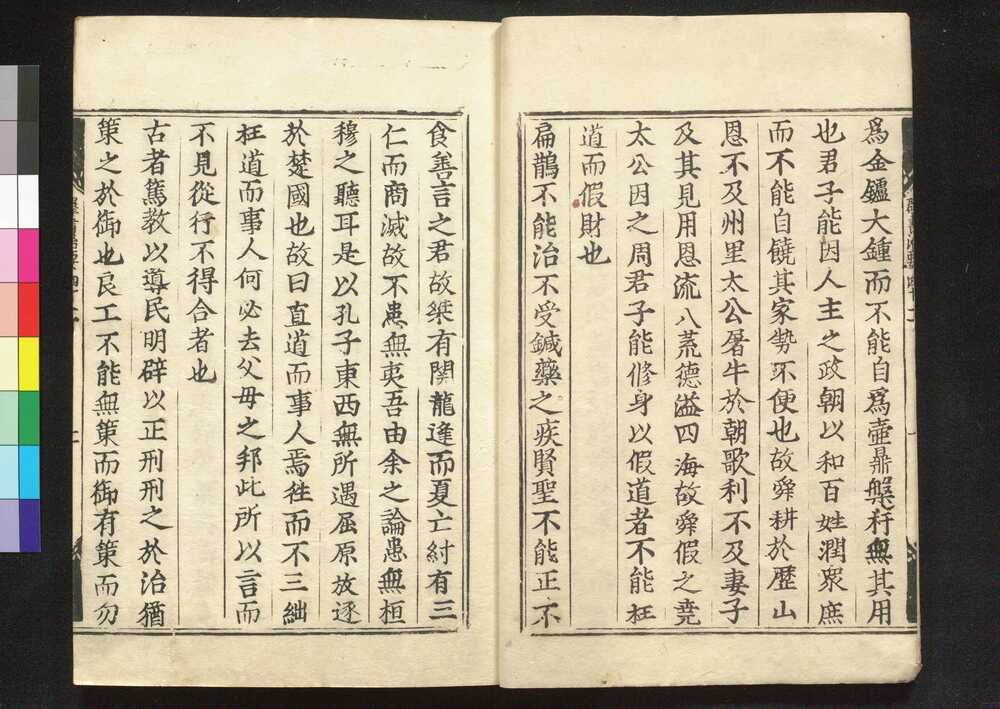 為金鑪大鍾而不能自為壺鼎槃杅無其用
也君子能因人主之政朝以和百姓潤眾庶
而不能自饒其家勢不便也故舜耕於歷山
恩不及州里太公屠牛於朝歌利不及妻子
及其見用恩流八荒德溢四海故舜假之堯
太公因之周君子能修身以假道者不能枉
道而假財也
扁鵲不能治不受鍼藥之疾賢聖不能正不
食善言之君故桀有関龍逢而夏亡紂有三
仁而商滅故不患無夷吾由余之論患無桓
穆之聽耳是以孔子東西無所遇屈原放逐
於楚國也故曰直道而事人焉往而不三絀
枉道而事人何必去父母之邦此所以言而
不見從行不得合者也
古者篤教以導民明辟以正刑刑之於治猶
策之於御也良工不能無策而御有策而勿